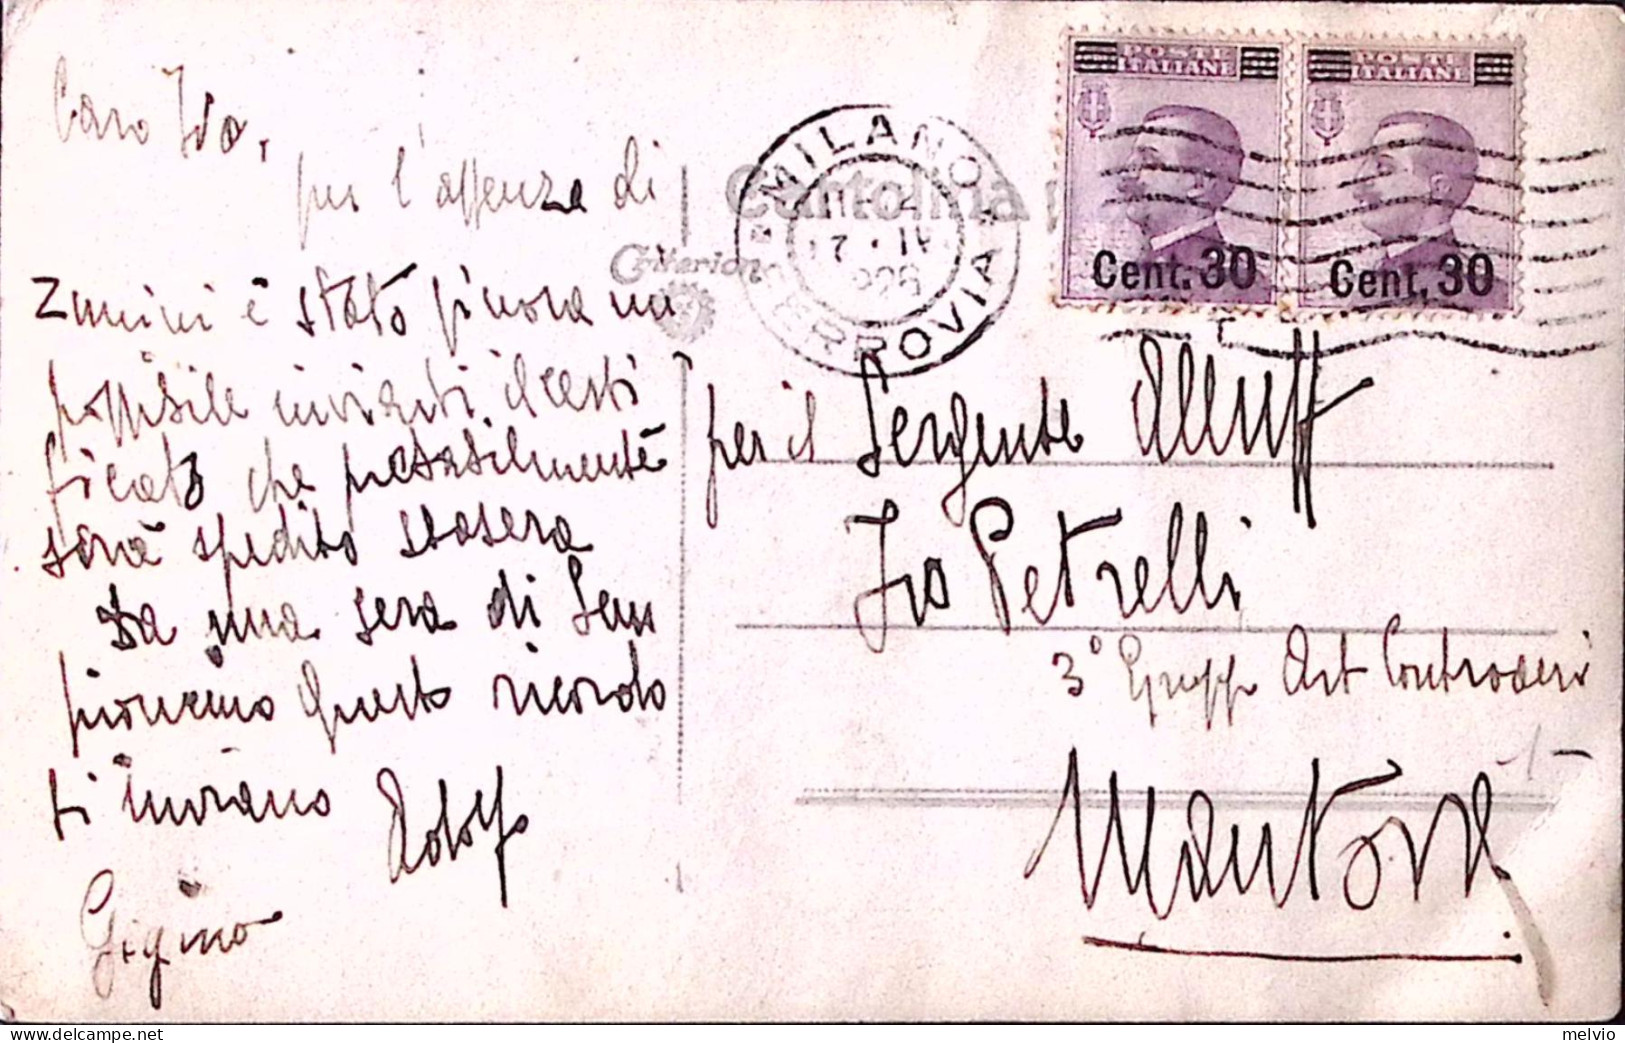 Caro Ivo,
per l'assenza di
Zunini è stato finora im
possibile inviarti il certi
ficato che possibilmente
sarà spedito stasera
Da una sera di Sem
pioneismo questo ricordo
ti inviano Adolfo
Gigino
Cartolina
Criterion
MILANO
17 · IV
FERROVIA
POSTE
ITALIANE
Cent. 30
POSTE
ITALIANE
Cent. 30
per il Sergente Alluff
Ivo Petrelli
3° Gruppo Art Controaerei
Mantova
melvio